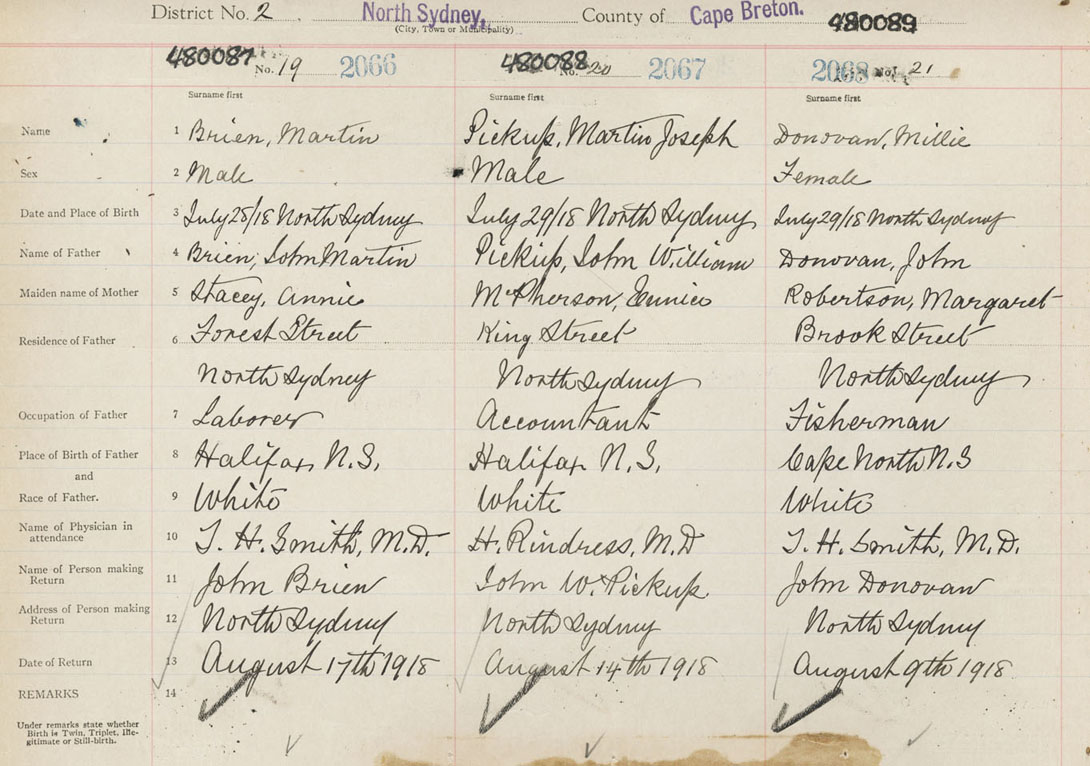 District No. 2 North Sydney, County of Cape Breton. 480089
(City, Town or Municipality)
480087 No. 19 2066 480088 No. 20 2067 2068 No. 21
Surname first Surname first Surname first
Name 1 Brien, Martin Pickup, Martin Joseph Donovan, Millie
Sex 2 Male Male Female
Date and Place of Birth 3 July 28/18 North Sydney July 29/18 North Sydney July 29/18 North Sydney
Name of Father 4 Brien, John Martin Pickup, John William Donovan, John
Maiden name of Mother 5 Stacey, Annie McPherson, Eunice Robertson, Margaret
Residence of Father 6 Forest Street King Street Brook Street
North Sydney North Sydney North Sydney
Occupation of Father 7 Laborer Accountant Fisherman
Place of Birth of Father 8 Halifax N.S. Halifax N.S. Cape North N.S
and
Race of Father. 9 White White White
Name of Physician in
attendance 10 T. H. Smith, M.D. H. Rindress, M.D T. H. Smith, M.D.
Name of Person making
Return 11 John Brien John W. Pickup John Donovan
Address of Person making
Return 12 North Sydney North Sydney North Sydney
Date of Return 13 August 17th 1918 August 14th 1918 August 9th 1918
REMARKS 14
Under remarks state whether
Birth is Twin, Triplet, Ille-
gitimate or Still-birth.